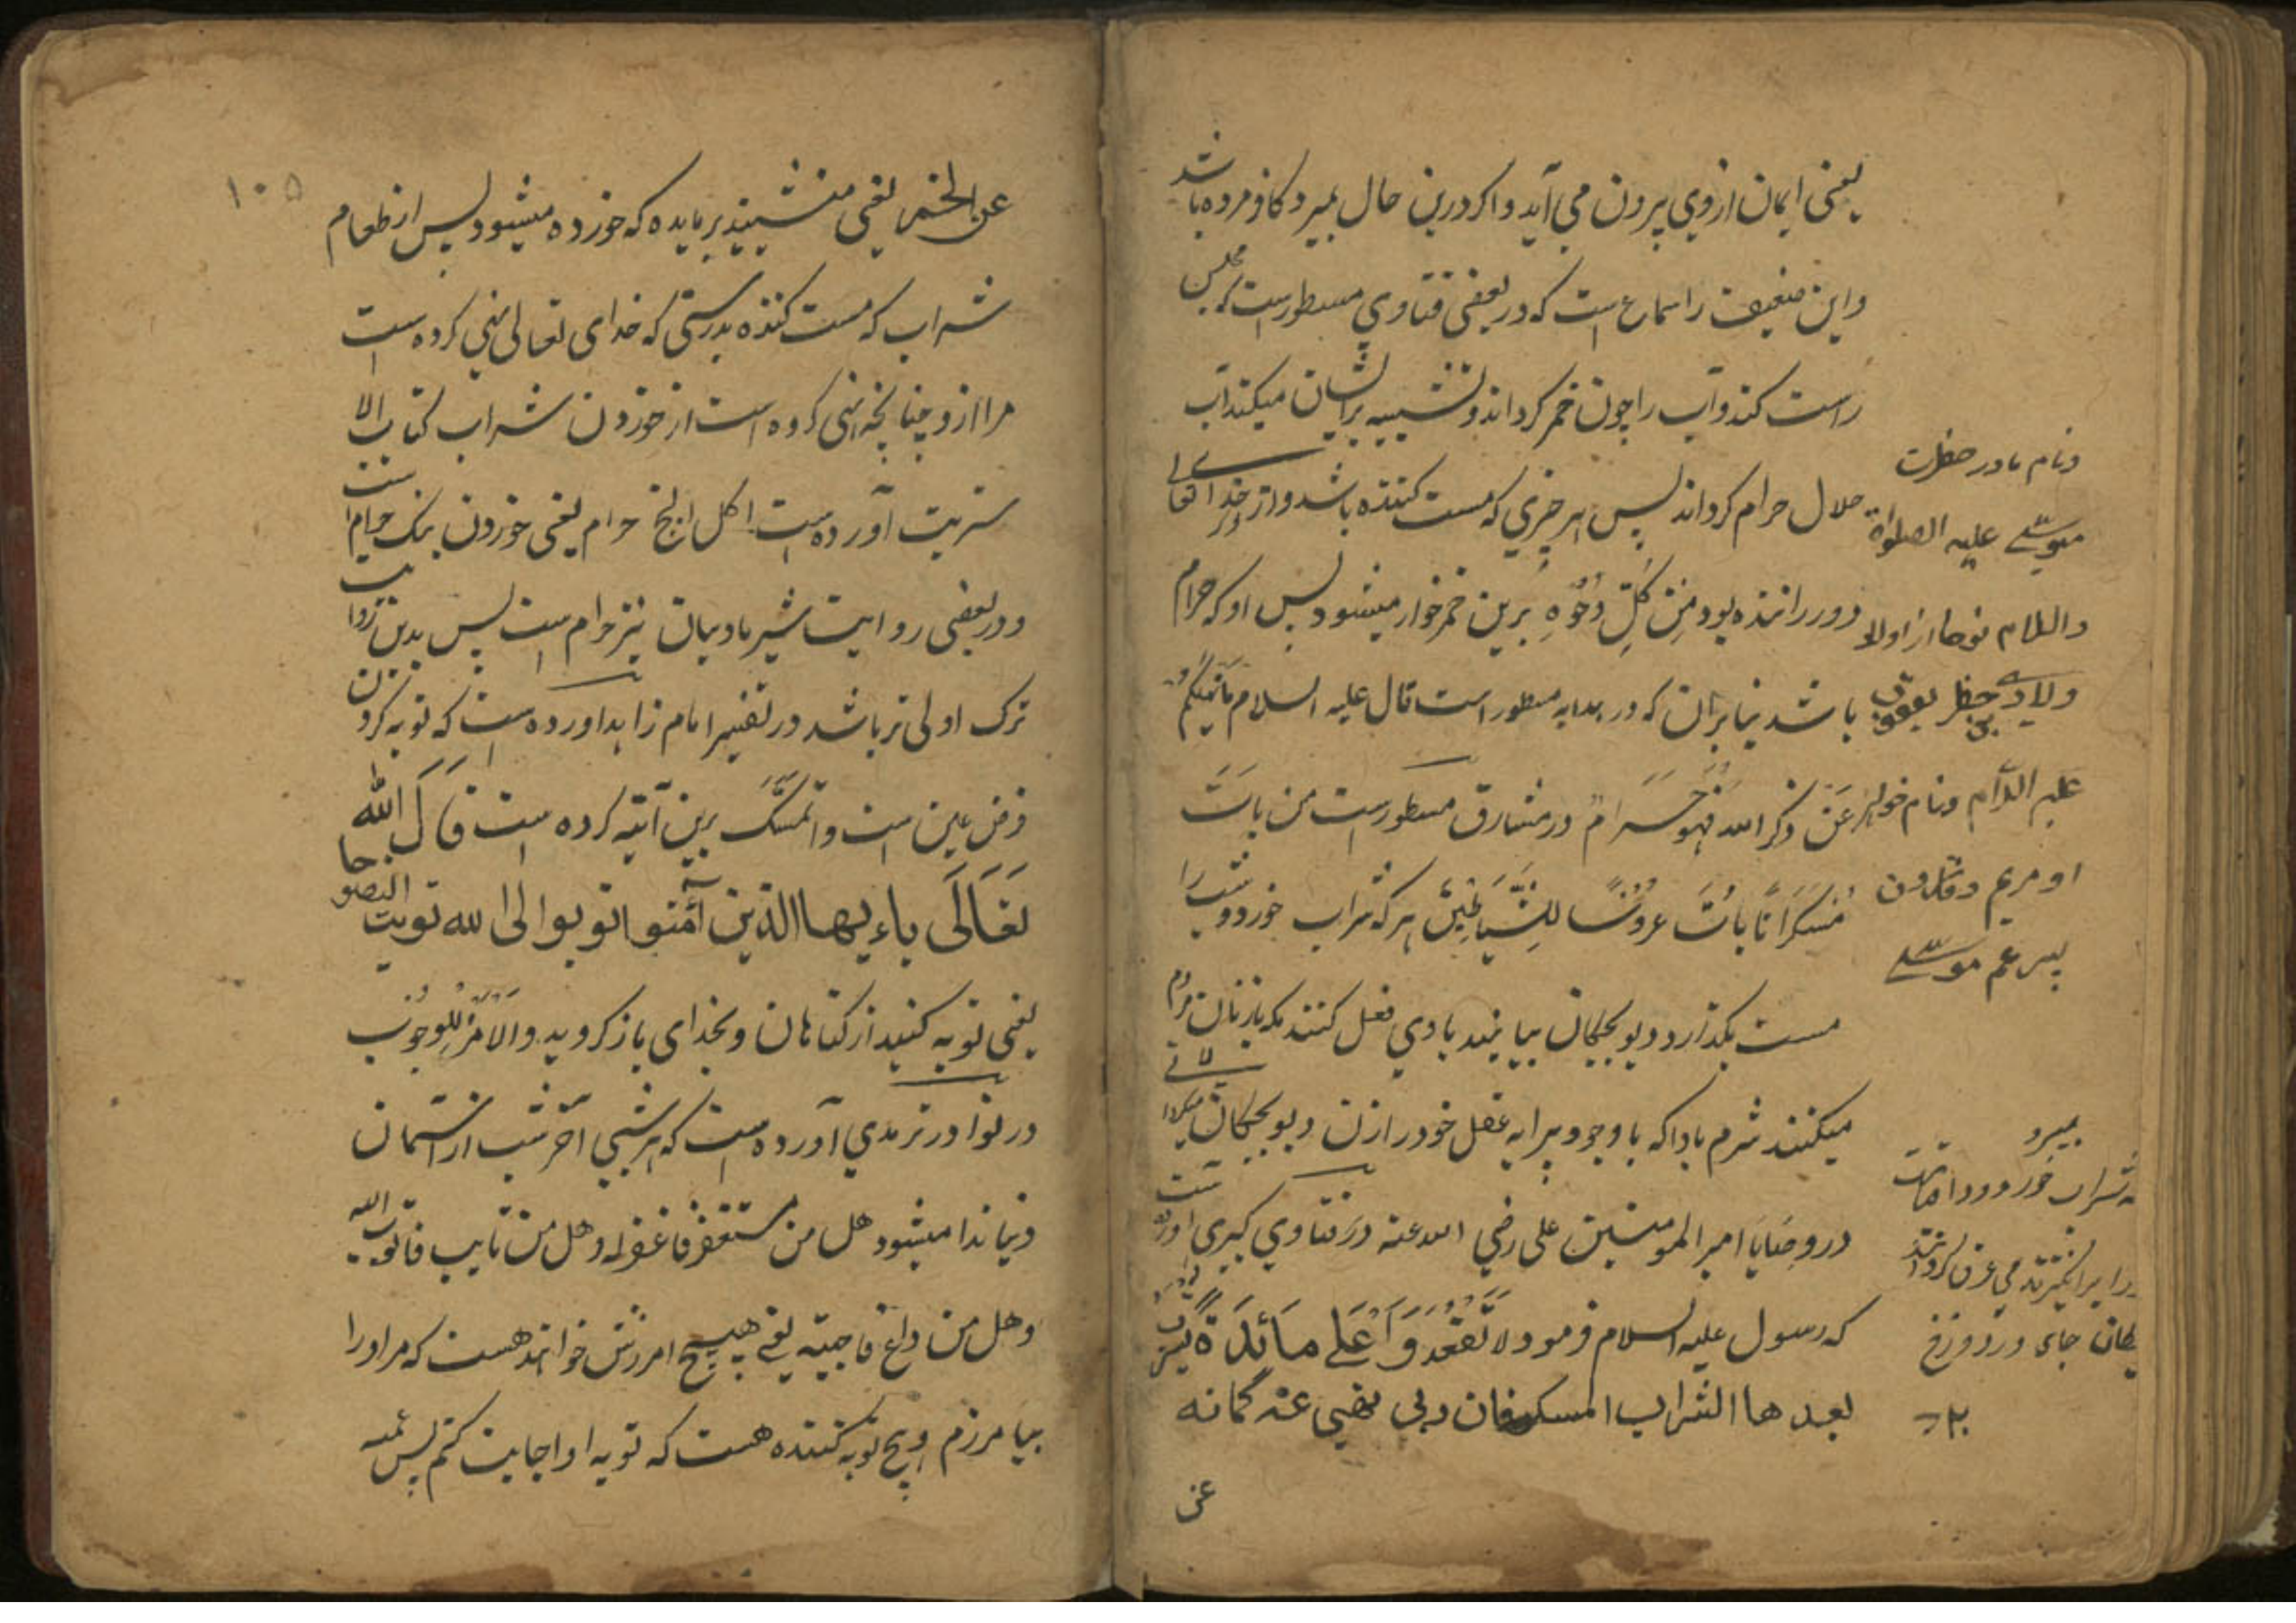 یعنی ایمان از وی بیرون می آید و اکر درین حال بمیرد کافر مرده باشد
واین ضعیف را سماع است که در بعضی فتاوی مسطور است که مجلس
راست کند و آب را چون خمر کرداند و تشبیه برایشان میکند آب
حلال حرام کرداند پس هر چیزی که مست کننده باشد و از ذکر خدا تعالی
دور راننده بود من کل وجوه برین خمر خوار میشود پس او که حرام
باشد بنا بران که در هدایه مسطور است قال علیه السلام ما یلهیکم
عن ذکر الله فهو حرام در مشارق مسطور است من بات
سکرانا بات عروسا للشیاطین هر که شراب خورد و شب را
مست بکذارد دیو بچکان بیایند با وی فعل کنند که با زنان مردم
میکنند شرم بادا که با وجود پیرایه عقل خود را زن دیو بچکان
در وصایا امیر المومنین علی رضی الله عنه در فتاوی کبری آورده است
که رسول علیه السلام فرمود لا تقعدوا علی مائدة یشرب
بعدها الشراب المسکر فان ربی نهی عنه کما نه
عن
ونام مادر حضرت
موسی علیه الصلواة
والسلام نوحا از اولاد
ولادی حضرت یعقوب
علیه السلام ونام خواهر
او مریم و قارون
پسر عم موسی
بمیرد
شراب خورد و قیامت
را برانکیزند می غرق کردانند
جای در دوزخ
۱۰۵
عن الخمر یعنی منشینید بر مایده که خورده میشود پس از طعام
شراب که مست کننده بدرستی که خدای تعالی نهی کرده است
مرا ازو چنانچه نهی کرده است از خوردن شراب کتاب الا
شربت آورده است اکل البنج حرام یعنی خوردن بنک حرام است
و در بعضی روایت شیر مادیان نیز حرام است پس بدین روایت
ترک اولی تر باشد در تفسیر امام زاهد آورده است که توبه کردن
فرض عین است و تمسک برین آیته کرده است قال الله
تعالی یاءیها الذین آمنوا توبوا الی الله توبت النصوحا
یعنی توبه کنید از کناهان و بخدای باز کردید والامر للوجوب
در نوادر ترمدی آورده است که هر شبی آخر شب از آسمان
دنیا ندا میشود هل من مستغفر فاغفرله وهل من تایب فاتوب الیه
وهل من داع فاجیبه یعنی هیچ امرزش خواهنده هست که مر اورا
بیامرزم و هیچ توبه کننده هست که توبه او اجابت کنم پس